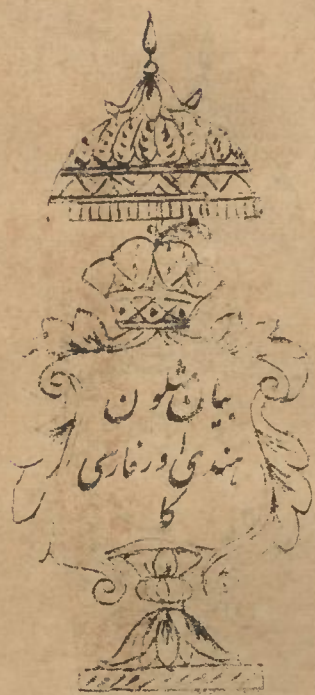 بیان مثلون
هندی اور فارسی
کا